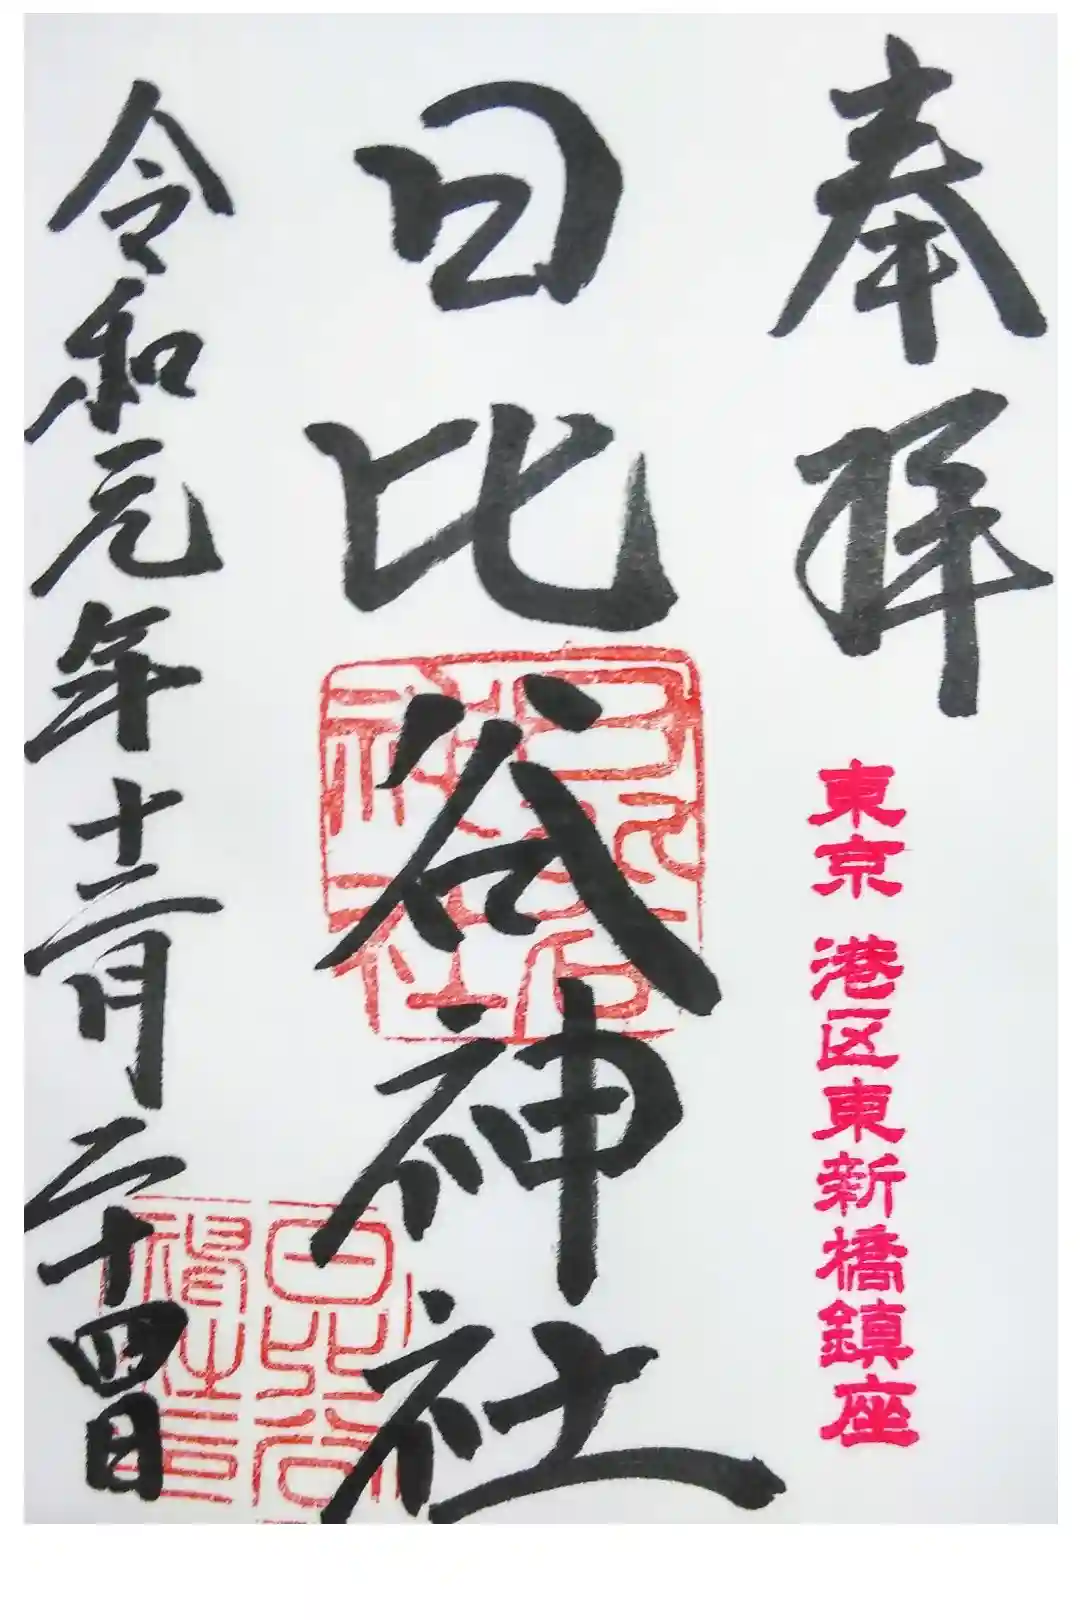 奉拝
東京 港区東新橋鎮座
日比谷神社
令和元年十二月二十四日